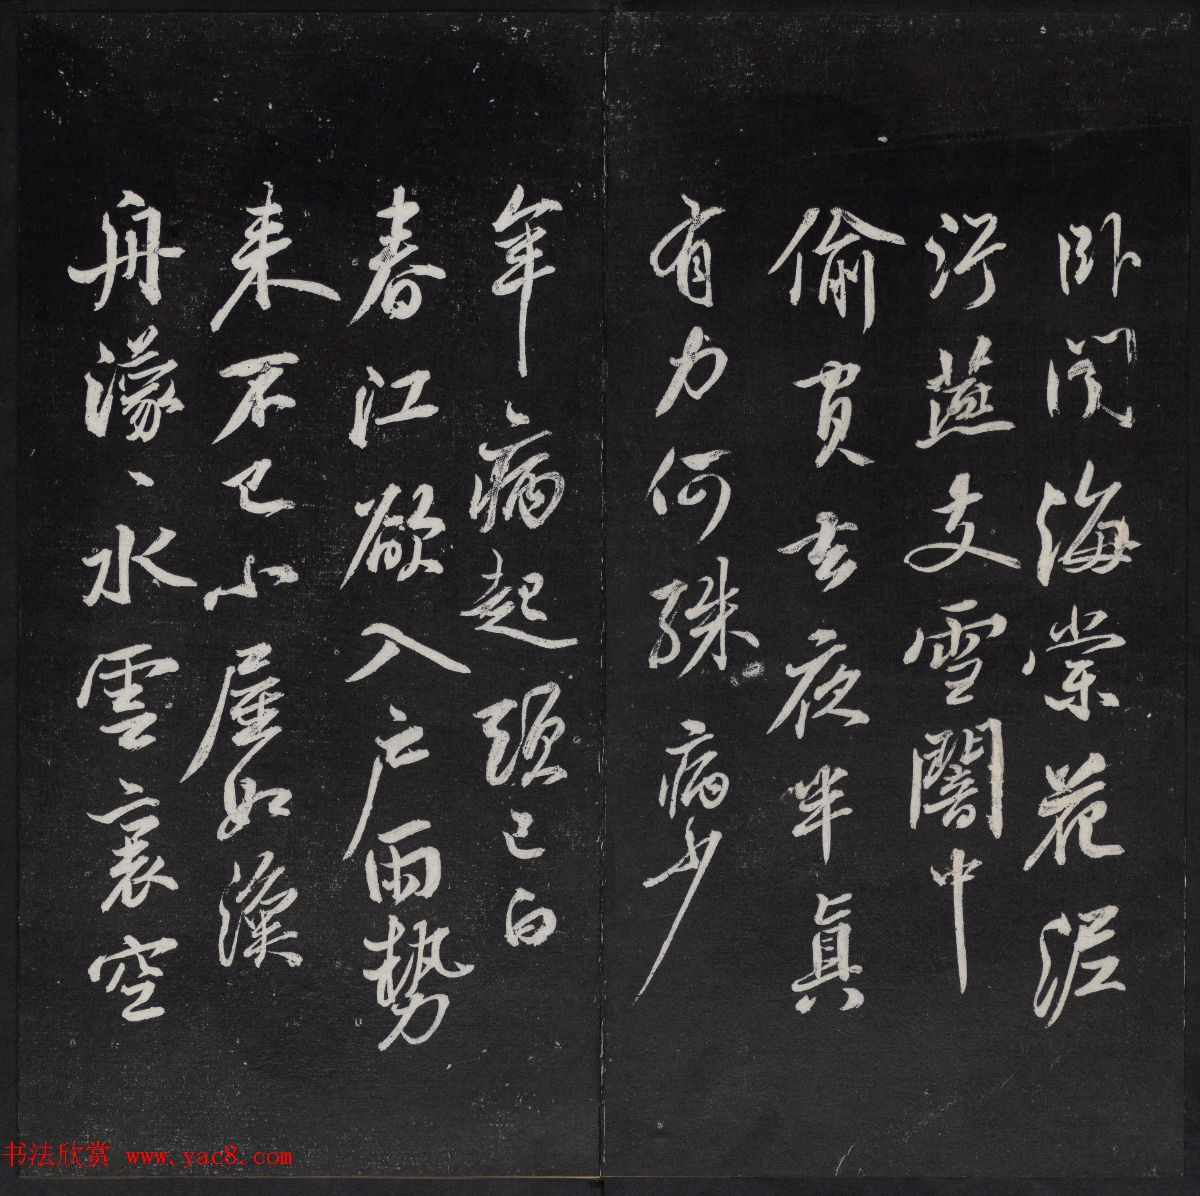 臥聞海棠花泥
汙燕支雪闇中
偷負去夜半真
有力何殊病少
年病起頭已白
春江欲入戶雨勢
來不已小屋如漁
舟濛〻水雲裏空
书法欣赏 www.yac8.com